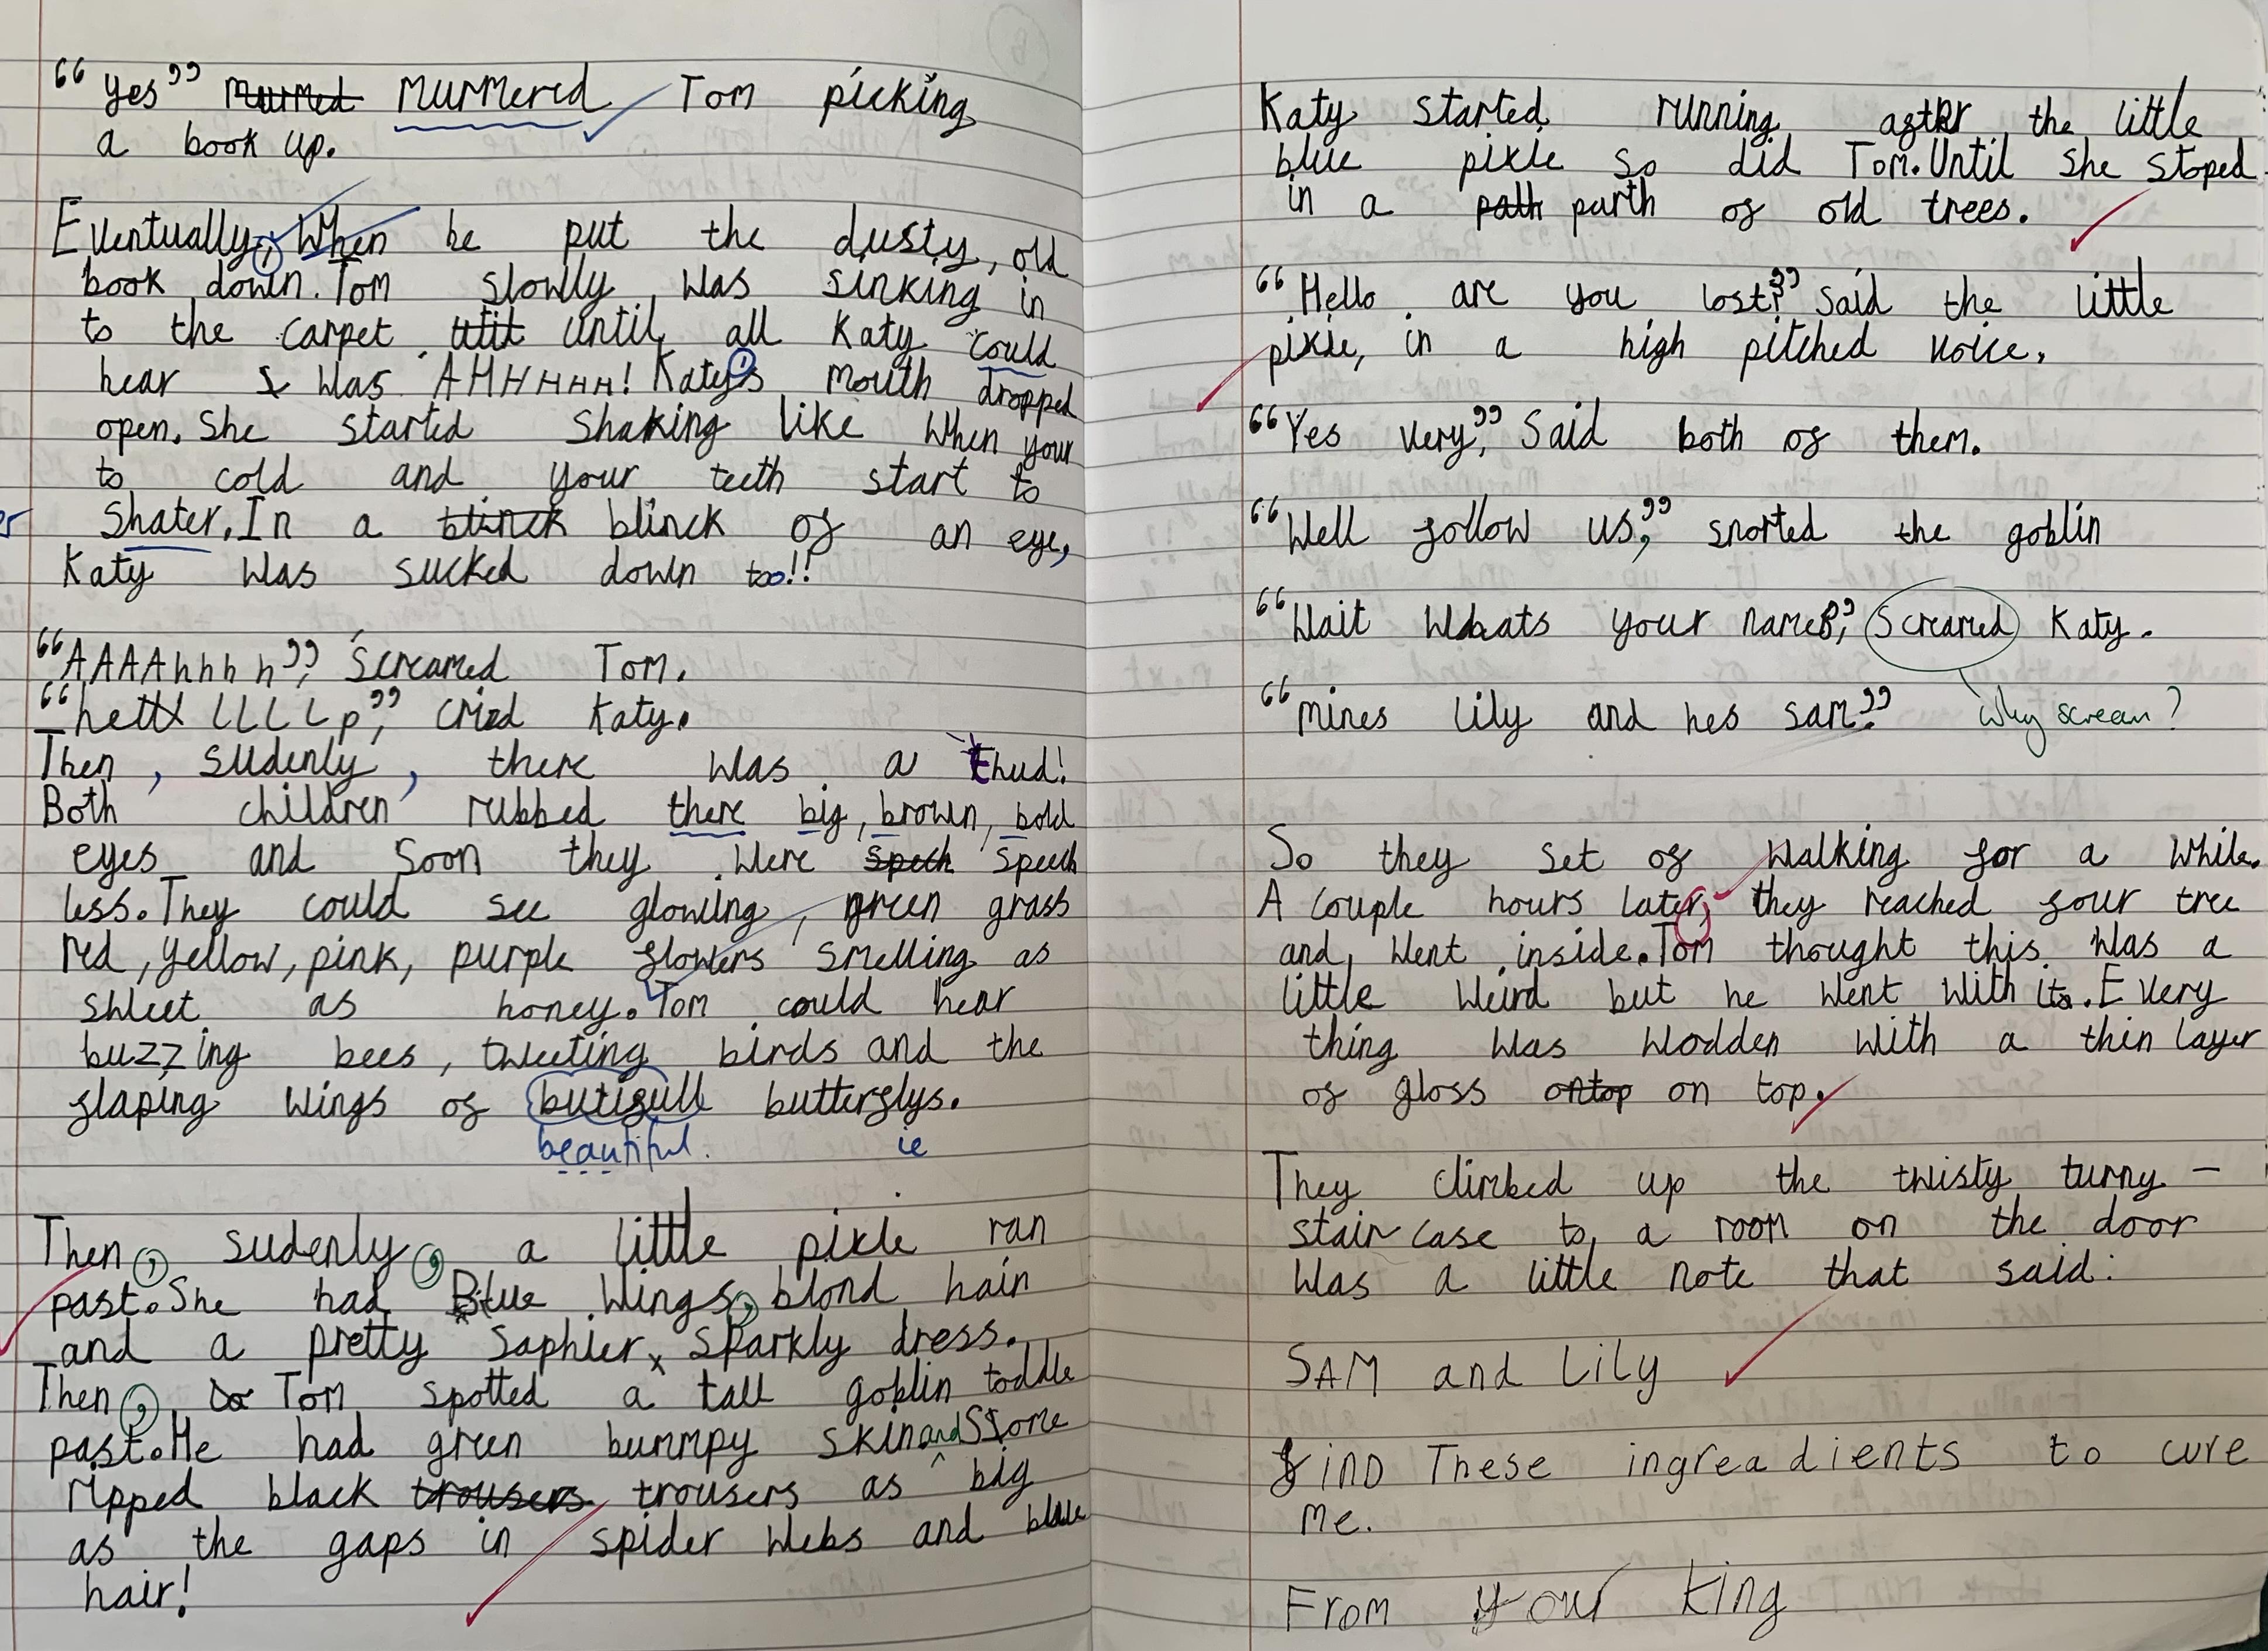 "Yes" murmed murmered Tom picking
a book up.
Eventually, When he put the dusty, old
book down. Tom slowly was sinking in
to the carpet until all Katy could
hear was AHHHHHH! Katy's mouth dropped
open. She started shaking like when your
to cold and your teeth start to
shater. In a blinck blinck of an eye,
Katy was sucked down too!!
"AAAAhhhh", Screamed Tom.
"hellLLLLp", cried Katy.
Then, sudenly, there was a thud!
Both children rubbed there big, brown, bold
eyes and soon they were spech speech
less. They could see glowing, green grass
red, yellow, pink, purple flowers smelling as
sweet as honey. Tom could hear
buzzing bees, tweeting birds and the
flaping wings of butifull butterflys.
beautiful. ie
Then, sudenly, a little pixie ran
past. She had Blue wings, blond hair
and a pretty saphier, sparkly dress.
Then, Tom spotted a tall goblin toddle
past. He had green bummpy skin and some
ripped black trousers trousers as big
as the gaps in spider webs and blue
hair!
Katy started running after the little
blue pixie so did Tom. Until she stoped
in a path parth of old trees.
"Hello are you lost?" said the little
pixie, in a high pitched voice.
"Yes very", said both of them.
"Well follow us", snorted the goblin
"Wait whats your name?", screamed Katy.
"mines lily and hes sam."
why scream?
So they set of walking for a while.
A couple hours later, they reached four tree
and went inside. Tom thought this was a
little weird but he went with it. Every
thing was wodden with a thin layer
of gloss ontop on top.
They climbed up the twisty turny -
stair case to a room on the door
was a little note that said:
SAM and Lily
find These ingreadients to cure
me.
From your king